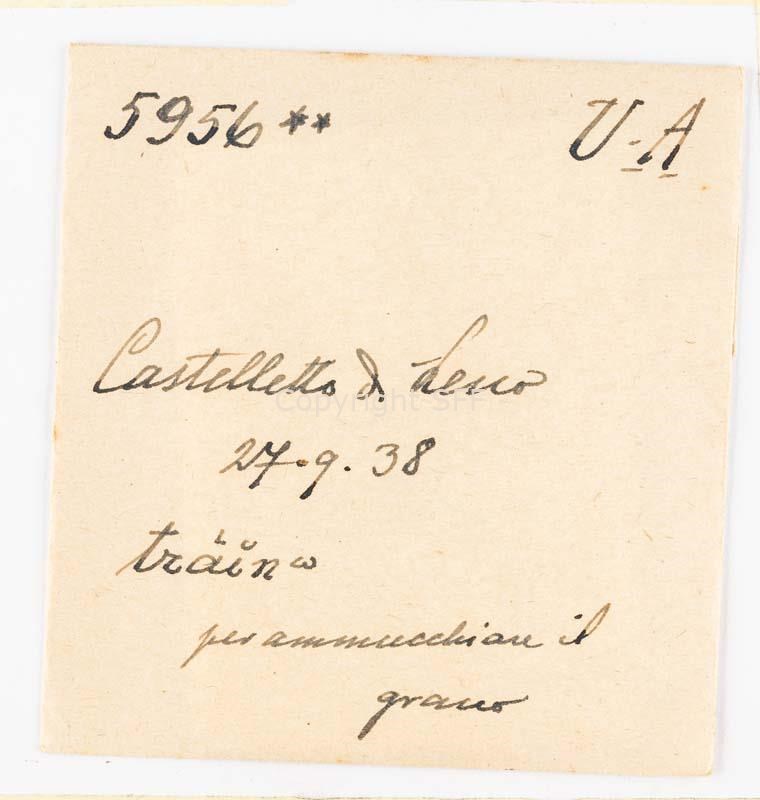 5956** U-A
Castelletto d. Leno
Copyright SFF
27.9.38
tráĭnω
per ammucchiare il
grano